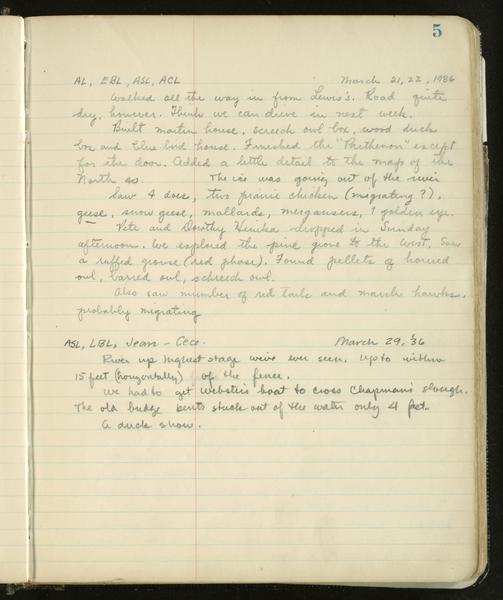 5
AL, EBL, ASL, ACL March 21, 22, 1936
Walked all the way in from Lewis's. Road quite
dry, however. Think we can drive in next week.
Built martin house, screech owl box, wood duck
box and blue bird house. Finished the "Parthenon" except
for the door. Added a little detail to the map of the
North 40. The ice was going out of the river
Saw 4 does, two prairie chicken (migrating?),
geese, snow geese, mallards, mergansers, 1 golden eye.
Pete and Dorothy dropped in Sunday
afternoon. We explored the pine grove to the West. Saw
a ruffed grouse (red phase). Found pellets of horned
owl, barred owl, schreech owl.
Also saw number of red tails and marsh hawks,
probably migrating
ASL, LBL, Jean - Cece. March 29, '36
River up highest stage we've ever seen. Up to within
15 feet (horizontally) of the fence.
We had to get Webster's boat to cross Chapman's slough.
The old bridge bents stuck out of the water only 4 feet.
A duck show.